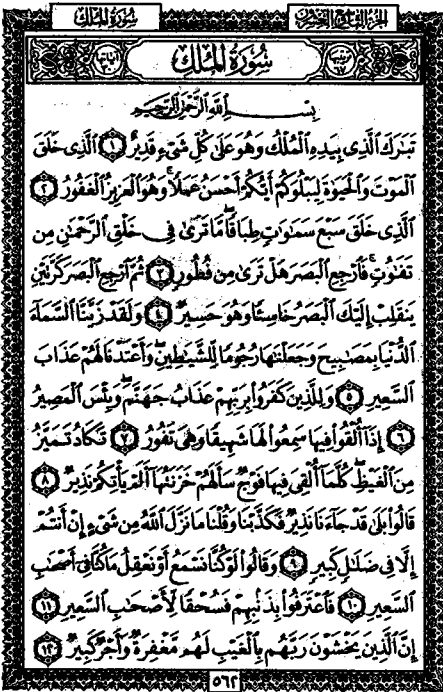 سُورَةُ المُلْكِ
الجزء التاسع والعشرون
سُورَةُ المُلْكِ
بِسْمِ اللَّهِ الرَّحْمَٰنِ الرَّحِيمِ
تَبَارَكَ الَّذِي بِيَدِهِ الْمُلْكُ وَهُوَ عَلَىٰ كُلِّ شَيْءٍ قَدِيرٌ ١ الَّذِي خَلَقَ
الْمَوْتَ وَالْحَيَوٰةَ لِيَبْلُوَكُمْ أَيُّكُمْ أَحْسَنُ عَمَلًا ۚ وَهُوَ الْعَزِيزُ الْغَفُورُ ٢
الَّذِي خَلَقَ سَبْعَ سَمَٰوَاتٍ طِبَاقًا ۖ مَّا تَرَىٰ فِي خَلْقِ الرَّحْمَٰنِ مِن
تَفَٰوُتٍ ۖ فَارْجِعِ الْبَصَرَ هَلْ تَرَىٰ مِن فُطُورٍ ٣ ثُمَّ ارْجِعِ الْبَصَرَ كَرَّتَيْنِ
يَنقَلِبْ إِلَيْكَ الْبَصَرُ خَاسِئًا وَهُوَ حَسِيرٌ ٤ وَلَقَدْ زَيَّنَّا السَّمَاءَ
الدُّنْيَا بِمَصَٰبِيحَ وَجَعَلْنَٰهَا رُجُومًا لِّلشَّيَٰطِينِ ۖ وَأَعْتَدْنَا لَهُمْ عَذَابَ
السَّعِيرِ ٥ وَلِلَّذِينَ كَفَرُوا بِرَبِّهِمْ عَذَابُ جَهَنَّمَ ۖ وَبِئْسَ الْمَصِيرُ
٦ إِذَا أُلْقُوا فِيهَا سَمِعُوا لَهَا شَهِيقًا وَهِيَ تَفُورُ ٧ تَكَادُ تَمَيَّزُ
مِنَ الْغَيْظِ ۖ كُلَّمَا أُلْقِيَ فِيهَا فَوْجٌ سَأَلَهُمْ خَزَنَتُهَا أَلَمْ يَأْتِكُمْ نَذِيرٌ ٨
قَالُوا بَلَىٰ قَدْ جَاءَنَا نَذِيرٌ فَكَذَّبْنَا وَقُلْنَا مَا نَزَّلَ اللَّهُ مِن شَيْءٍ إِنْ أَنتُمْ
إِلَّا فِي ضَلَٰلٍ كَبِيرٍ ٩ وَقَالُوا لَوْ كُنَّا نَسْمَعُ أَوْ نَعْقِلُ مَا كُنَّا فِي أَصْحَٰبِ
السَّعِيرِ ١٠ فَاعْتَرَفُوا بِذَنبِهِمْ فَسُحْقًا لِّأَصْحَٰبِ السَّعِيرِ ١١
إِنَّ الَّذِينَ يَخْشَوْنَ رَبَّهُم بِالْغَيْبِ لَهُم مَّغْفِرَةٌ وَأَجْرٌ كَبِيرٌ ١٢
٥٦٢